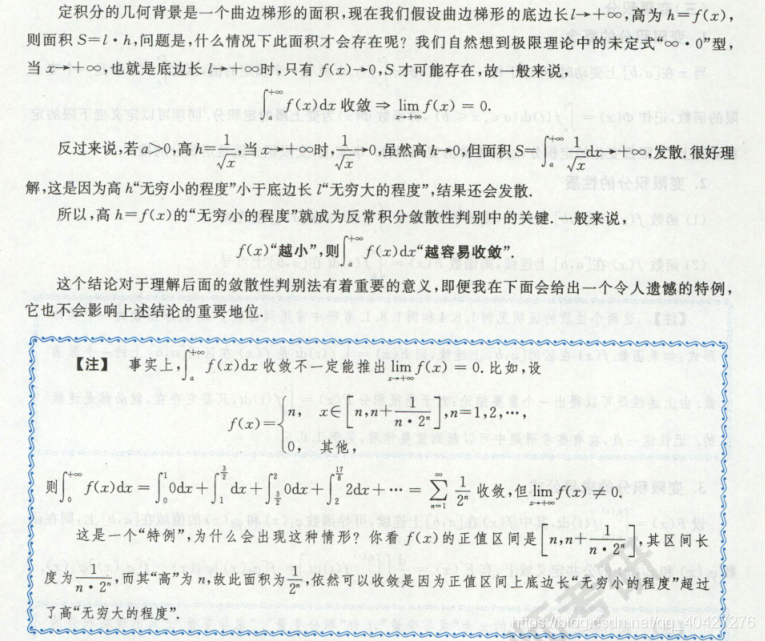 定积分的几何背景是一个曲边梯形的面积,现在我们假设曲边梯形的底边长l→+∞,高为 h=f(x),
则面积 S=l·h,问题是,什么情况下此面积才会存在呢? 我们自然想到极限理论中的未定式“∞·0”型,
当 x→+∞,也就是底边长 l→+∞时,只有 f(x)→0,S才可能存在,故一般来说,
∫_a^{+∞} f(x)dx 收敛 ⇒ lim_{x→+∞} f(x) = 0.
反过来说,若a>0,高h=1/√x,当x→+∞时,1/√x→0,虽然高h→0,但面积S=∫_a^{+∞} 1/√x dx→+∞,发散.很好理
解,这是因为高 h“无穷小的程度”小于底边长 l“无穷大的程度”,结果还会发散.
所以,高 h=f(x)的“无穷小的程度”就成为反常积分敛散性判别中的关键.一般来说,
f(x)“越小”,则∫_a^{+∞} f(x)dx“越容易收敛”.
这个结论对于理解后面的敛散性判别法有着重要的意义,即便我在下面会给出一个令人遗憾的特例,
它也不会影响上述结论的重要地位.
【注】 事实上,∫_a^{+∞} f(x)dx 收敛不一定能推出 lim_{x→+∞} f(x) = 0.比如,设
f(x)={n, x∈[n,n+1/(n·2ⁿ)],n=1,2,⋯,
0, 其他,
则∫_0^{+∞} f(x)dx = ∫_0^1 0dx + ∫_1^{3/2} dx + ∫_{3/2}^2 0dx + ∫_2^{17/8} 2dx + ⋯ = ∑_{n=1}^∞ 1/2ⁿ 收敛,但 lim_{x→+∞} f(x) ≠ 0.
这是一个“特例”,为什么会出现这种情形? 你看 f(x)的正值区间是[n,n+1/(n·2ⁿ)],其区间长
度为1/(n·2ⁿ),而其“高”为 n,故此面积为1/2ⁿ,依然可以收敛是因为正值区间上底边长“无穷小的程度”超过
了高“无穷大的程度”.
https://blog.csdn.net/qq_40427276